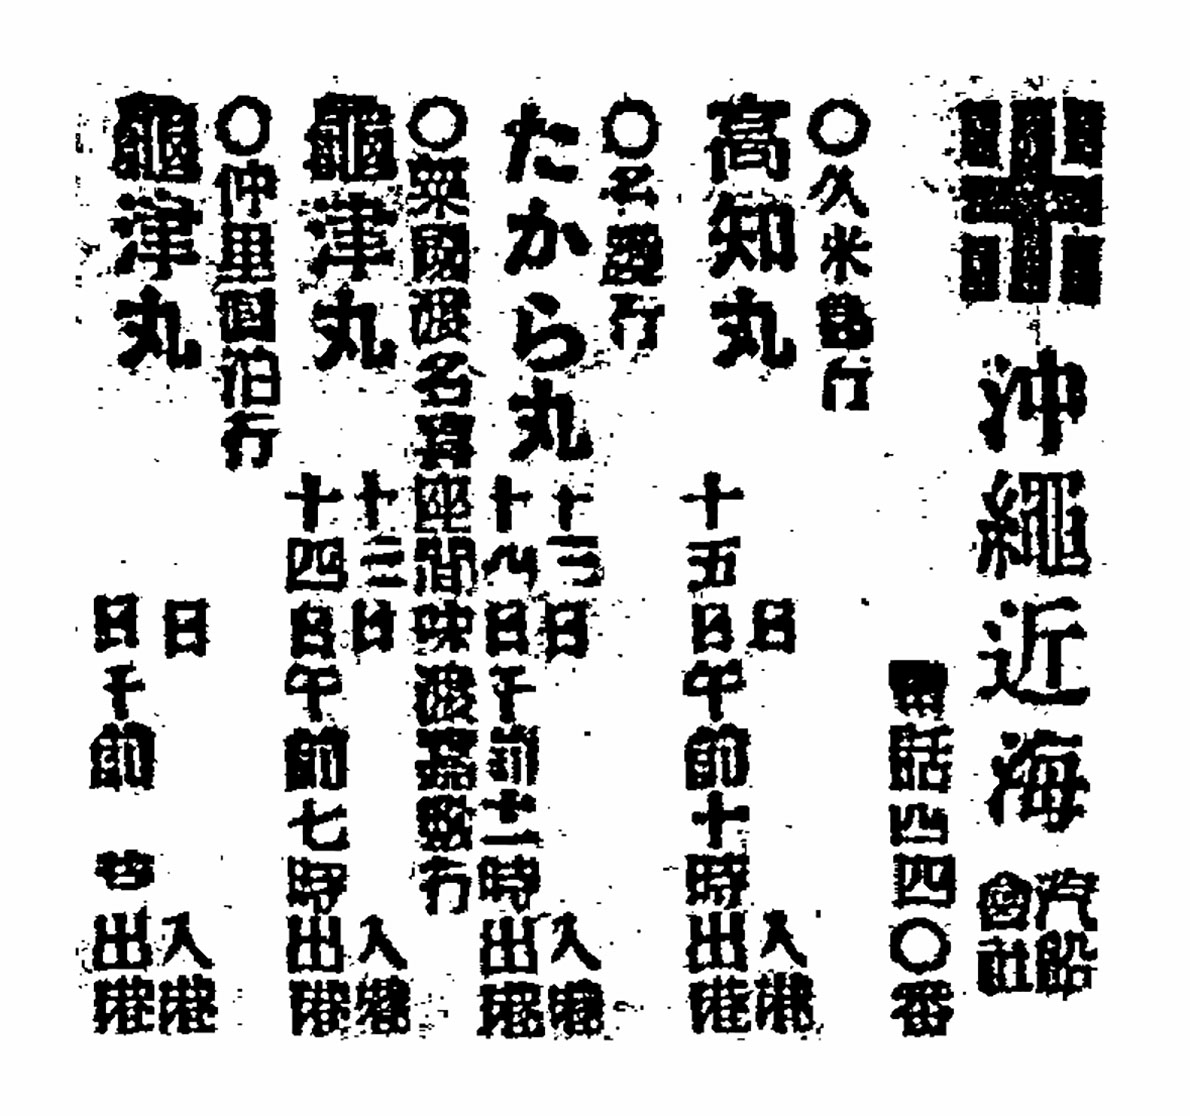 沖繩近海汽船會社
電話四四〇番
〇久米島行
高知丸
日入港
十五日午前十時出港
〇名護行
たから丸
十二日入港
十八日午前十二時出港
〇粟國渡名喜座間味渡嘉敷行
龜津丸
十三日入港
十四日午前七時出港
〇仲里泊行
龜津丸
日入港
日午前 時出港